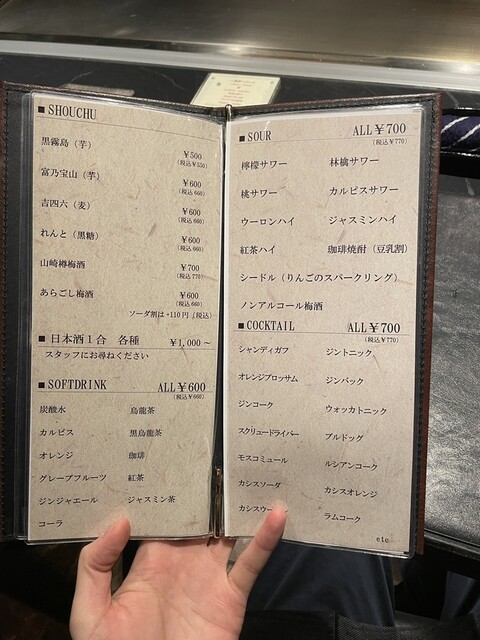 ■ SHOUCHU
黒霧島（芋）
￥500
（税込￥550）
富乃宝山（芋）
￥600
（税込660）
吉四六（麦）
￥600
（税込660）
れんと（黒糖）
￥600
（税込660）
山崎樽梅酒
￥700
（税込770）
あらごし梅酒
￥600
（税込660）
ソーダ割は+110円（税込）
■ 日本酒1合 各種 ￥1,000～
スタッフにお尋ねください
■ SOFTDRINK ALL￥600
（税込￥660）
炭酸水 烏龍茶
カルピス 黒烏龍茶
オレンジ 珈琲
グレープフルーツ 紅茶
ジンジャエール ジャスミン茶
コーラ
■ SOUR ALL￥700
（税込￥770）
檸檬サワー 林檎サワー
桃サワー カルピスサワー
ウーロンハイ ジャスミンハイ
紅茶ハイ 珈琲焼酎（豆乳割）
シードル（りんごのスパークリング）
ノンアルコール梅酒
■ COCKTAIL ALL￥700
（税込￥770）
シャンディガフ ジントニック
オレンジブロッサム ジンバック
ジンコーク ウォッカトニック
スクリュードライバー ブルドッグ
モスコミュール ルシアンコーク
カシスソーダ カシスオレンジ
カシスウー ラムコーク
etc